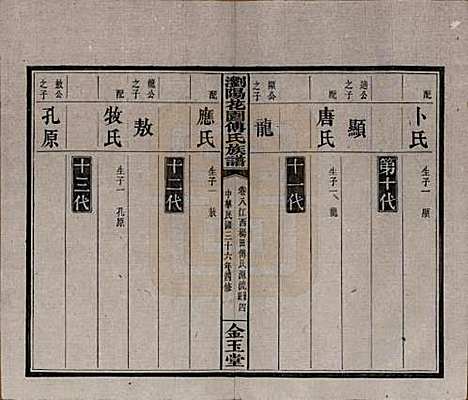 配
卜氏
生子一 顯
第十代
公之子
顯
配
唐氏
生子一 龍
十一代
顯公之子
龍
瀏陽花園傅氏族譜
卷八江西楊田傅氏源流圖四
中華民國三十六年四修
金玉堂
配
應氏
生子一 敖
十二代
龍公之子
敖
配
牧氏
生子一 孔原
十三代
敖公之子
孔原